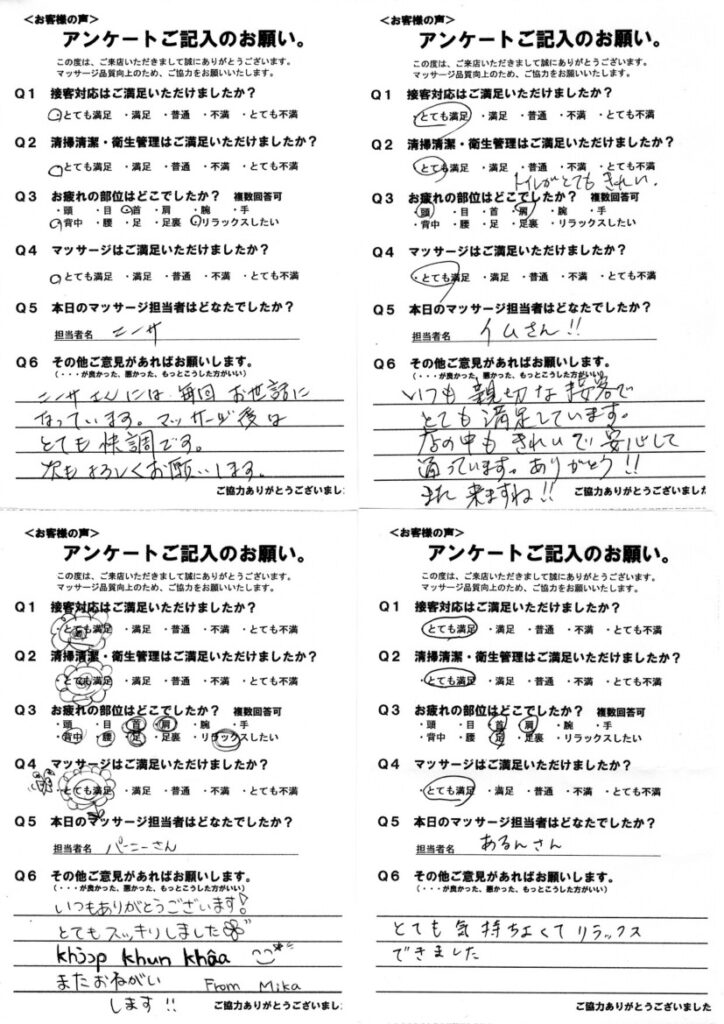 ＜お客様の声＞
アンケートご記入のお願い。
この度は、ご来店いただきまして誠にありがとうございます。
マッサージ品質向上のため、ご協力をお願いいたします。
Q1 接客対応はご満足いただけましたか？
・とても満足 ・満足 ・普通 ・不満 ・とても不満
Q2 清掃清潔・衛生管理はご満足いただけましたか？
・とても満足 ・満足 ・普通 ・不満 ・とても不満
Q3 お疲れの部位はどこでしたか？ 複数回答可
・頭 ・目 ・首 ・肩 ・腕 ・手
・背中 ・腰 ・足 ・足裏 ・リラックスしたい
Q4 マッサージはご満足いただけましたか？
・とても満足 ・満足 ・普通 ・不満 ・とても不満
Q5 本日のマッサージ担当者はどなたでしたか？
担当者名 ニーサ
Q6 その他ご意見があればお願いします。
（・・・が良かった、悪かった、もっとこうした方がいい）
ニーサさんには毎回お世話に
なっています。マッサージ後は
とても快調です。
次もよろしくお願いします。
ご協力ありがとうございまし
＜お客様の声＞
アンケートご記入のお願い。
この度は、ご来店いただきまして誠にありがとうございます。
マッサージ品質向上のため、ご協力をお願いいたします。
Q1 接客対応はご満足いただけましたか？
・とても満足 ・満足 ・普通 ・不満 ・とても不満
Q2 清掃清潔・衛生管理はご満足いただけましたか？
・とても満足 ・満足 ・普通 ・不満 ・とても不満
トイレがとてもきれい。
Q3 お疲れの部位はどこでしたか？ 複数回答可
・頭 ・目 ・首 ・肩 ・腕 ・手
・背中 ・腰 ・足 ・足裏 ・リラックスしたい
Q4 マッサージはご満足いただけましたか？
・とても満足 ・満足 ・普通 ・不満 ・とても不満
Q5 本日のマッサージ担当者はどなたでしたか？
担当者名 イムさん!!
Q6 その他ご意見があればお願いします。
（・・・が良かった、悪かった、もっとこうした方がいい）
いつも親切な接客で
とても満足しています。
店の中もきれいで安心して
通っています。ありがとう!!
また来ますね!!
ご協力ありがとうございました
＜お客様の声＞
アンケートご記入のお願い。
この度は、ご来店いただきまして誠にありがとうございます。
マッサージ品質向上のため、ご協力をお願いいたします。
Q1 接客対応はご満足いただけましたか？
・とても満足 ・満足 ・普通 ・不満 ・とても不満
Q2 清掃清潔・衛生管理はご満足いただけましたか？
・とても満足 ・満足 ・普通 ・不満 ・とても不満
Q3 お疲れの部位はどこでしたか？ 複数回答可
・頭 ・目 ・首 ・肩 ・腕 ・手
・背中 ・腰 ・足 ・足裏 ・リラックスしたい
Q4 マッサージはご満足いただけましたか？
・とても満足 ・満足 ・普通 ・不満 ・とても不満
Q5 本日のマッサージ担当者はどなたでしたか？
担当者名 パーニーさん
Q6 その他ご意見があればお願いします。
（・・・が良かった、悪かった、もっとこうした方がいい）
いつもありがとうございます!
とてもスッキリしました
khɔ̀ɔp khun khâa
またおねがい From Mika
します!!
ご協力ありがとうございました
＜お客様の声＞
アンケートご記入のお願い。
この度は、ご来店いただきまして誠にありがとうございます。
マッサージ品質向上のため、ご協力をお願いいたします。
Q1 接客対応はご満足いただけましたか？
・とても満足 ・満足 ・普通 ・不満 ・とても不満
Q2 清掃清潔・衛生管理はご満足いただけましたか？
・とても満足 ・満足 ・普通 ・不満 ・とても不満
Q3 お疲れの部位はどこでしたか？ 複数回答可
・頭 ・目 ・首 ・肩 ・腕 ・手
・背中 ・腰 ・足 ・足裏 ・リラックスしたい
Q4 マッサージはご満足いただけましたか？
・とても満足 ・満足 ・普通 ・不満 ・とても不満
Q5 本日のマッサージ担当者はどなたでしたか？
担当者名 あるんさん
Q6 その他ご意見があればお願いします。
（・・・が良かった、悪かった、もっとこうした方がいい）
とても気持ちよくてリラックス
できました
ご協力ありがとうございました